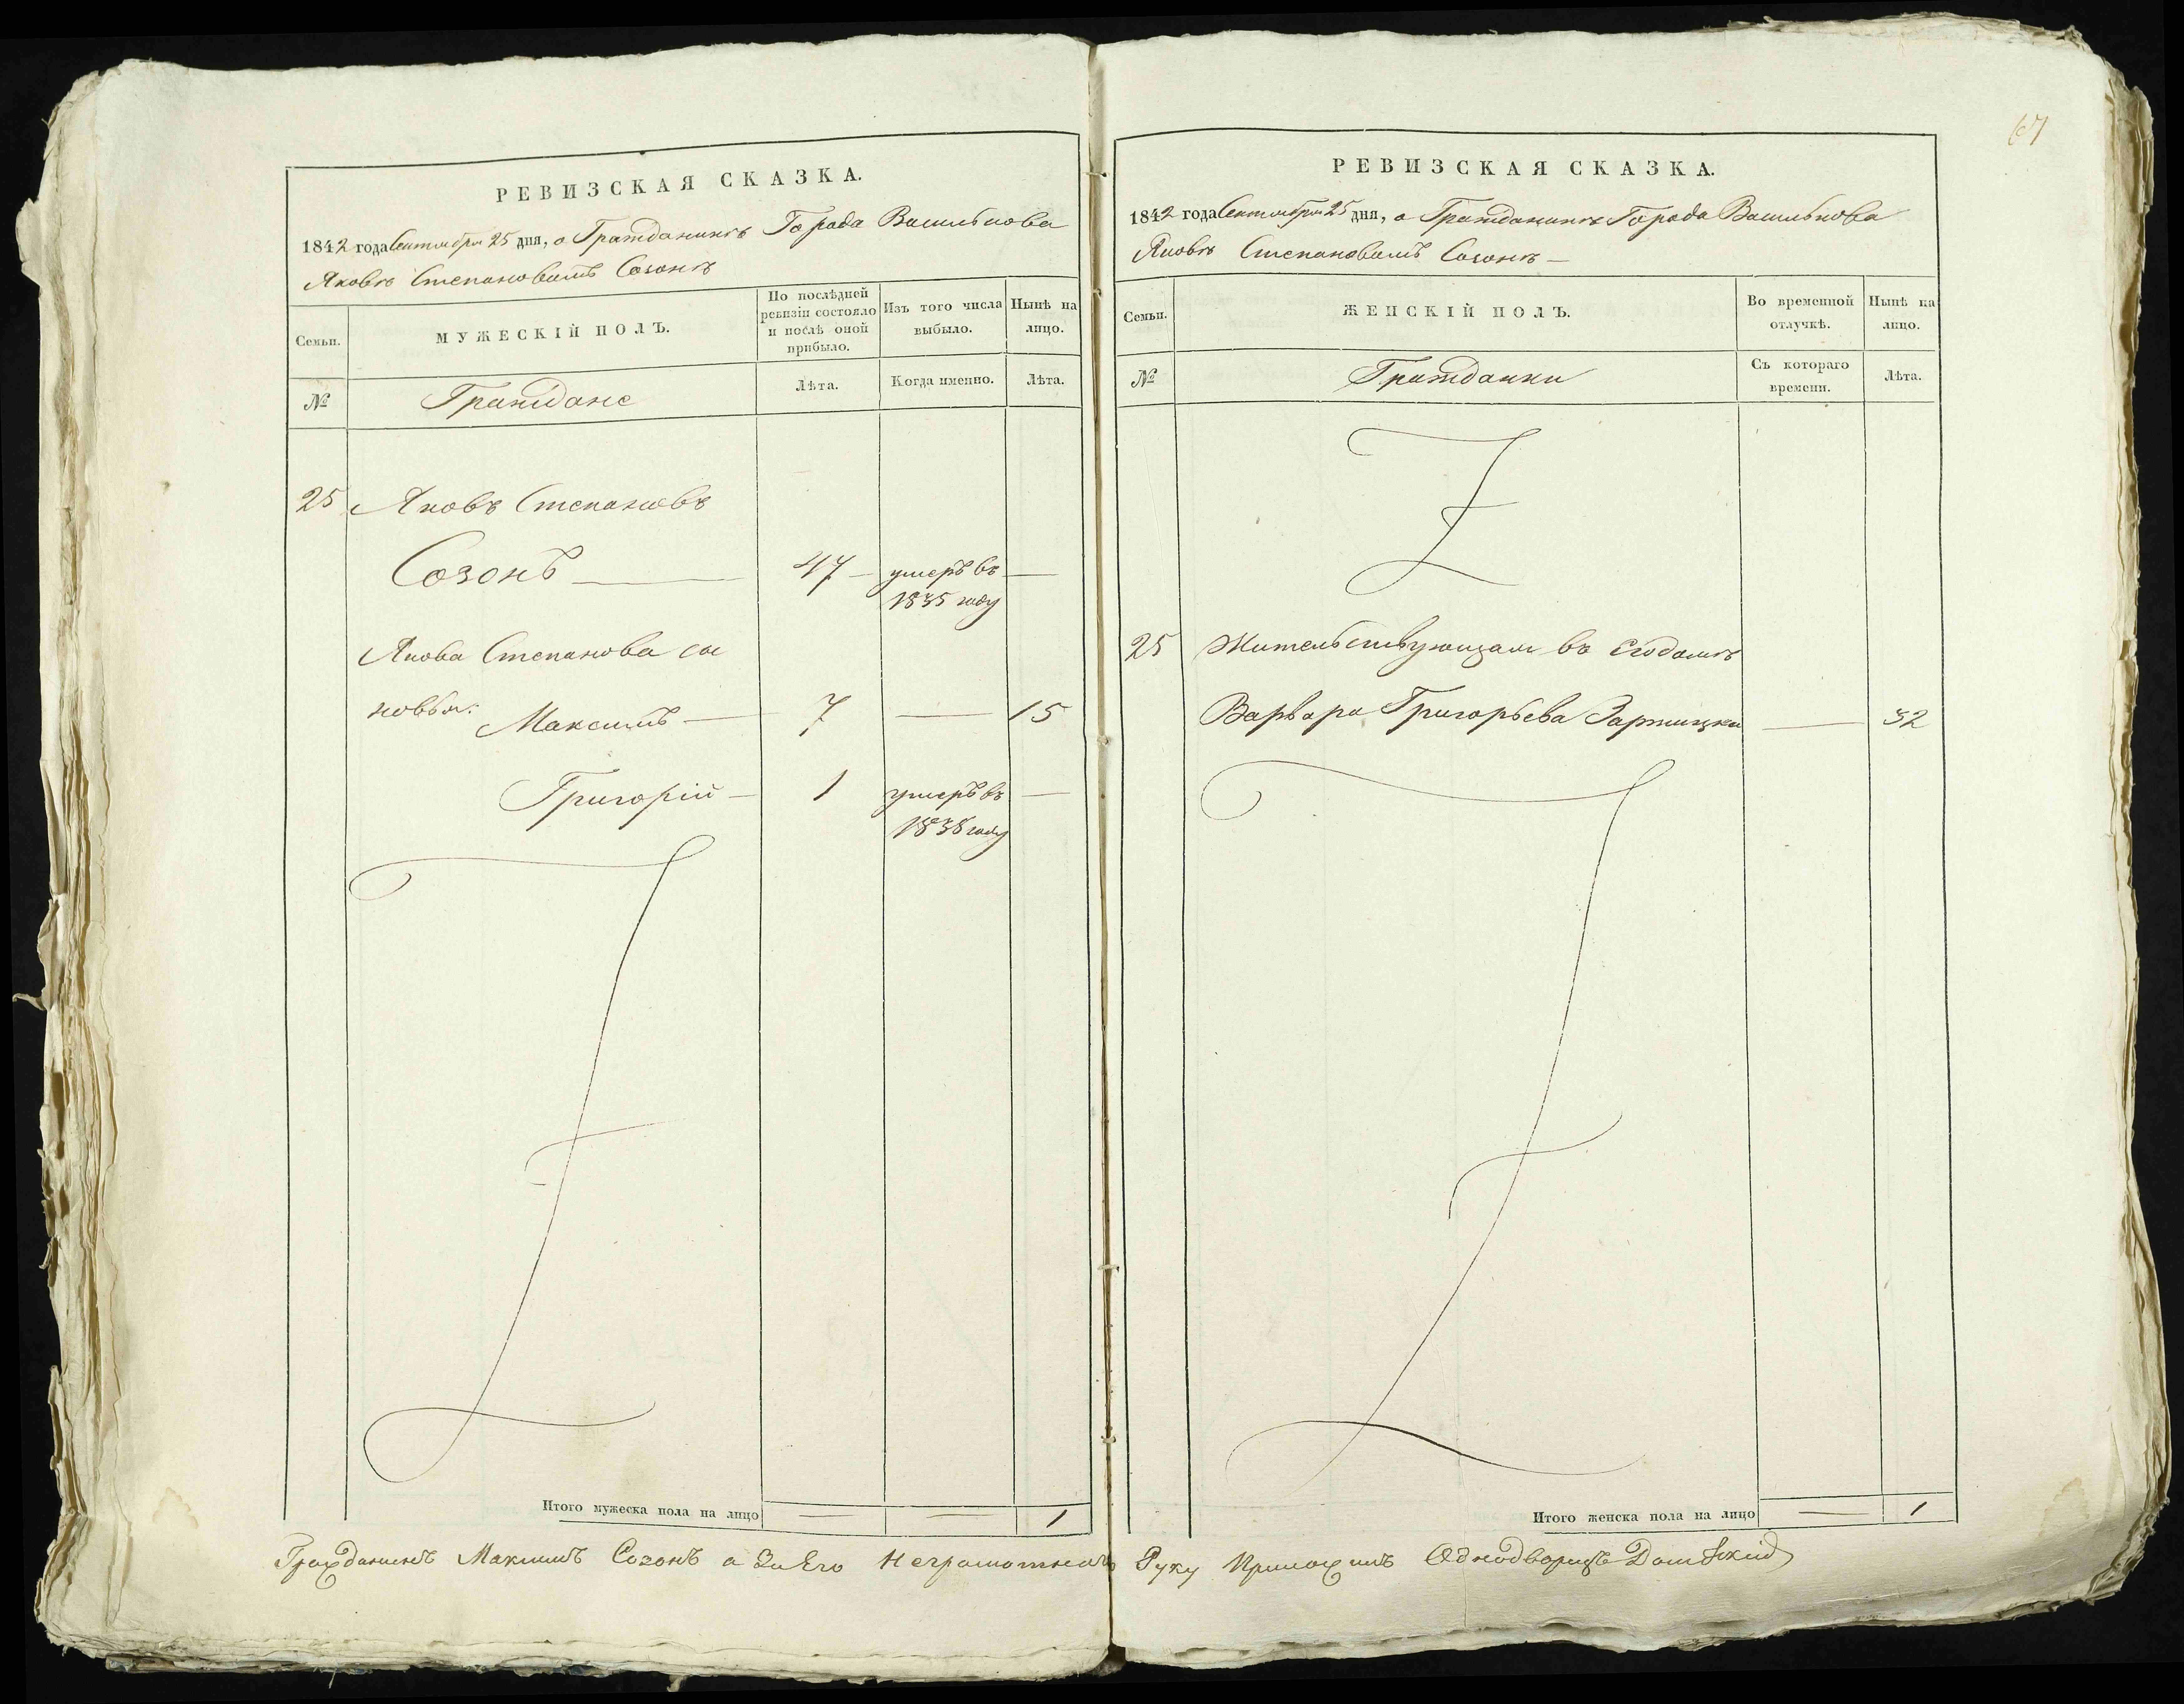 67
РЕВИЗСКАЯ СКАЗКА.
1842 года Сентября 25 дня, о Гражданинѣ Города Василькова
Яковѣ Степановомъ Созонѣ
Семьи.
МУЖЕСКІЙ ПОЛЪ.
По послѣдней ревизіи состояло и послѣ оной прибыло.
Изъ того числа выбыло.
Нынѣ на лицо.
№
Граждане
Лѣта.
Когда именно.
Лѣта.
25 Яковъ Степановъ
Созонъ — 47 — умеръ въ —
1835 году
Якова Степанова сы
новья: Максимъ — 7 — 15
Григорій — 1 умеръ въ —
1838 году
Итого мужеска пола на лицо — — 1
РЕВИЗСКАЯ СКАЗКА.
1842 года Сентября 25 дня, о Гражданинѣ Города Василькова
Яковѣ Степановомъ Созонѣ —
Семьи.
ЖЕНСКІЙ ПОЛЪ.
Во временной отлучкѣ.
Нынѣ на лицо.
№
Гражданки
Съ котораго времени.
Лѣта.
25 Жительствующая въ Его домѣ
Варвара Григорьева — 32
Итого женска пола на лицо — 1
Гражданинъ Максимъ Созонъ а За Его Неграмотнаго Руку Приложилъ Однодворецъ